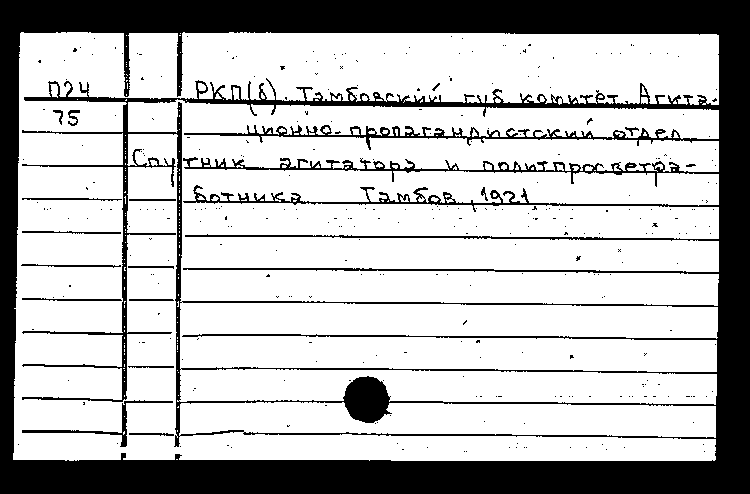 П24 РКП(б). Тамбовский губ комитет. Агита-
75 ционно-пропагандистский отдел
Спутник агитатора и политпросветра-
ботника Тамбов, 1921